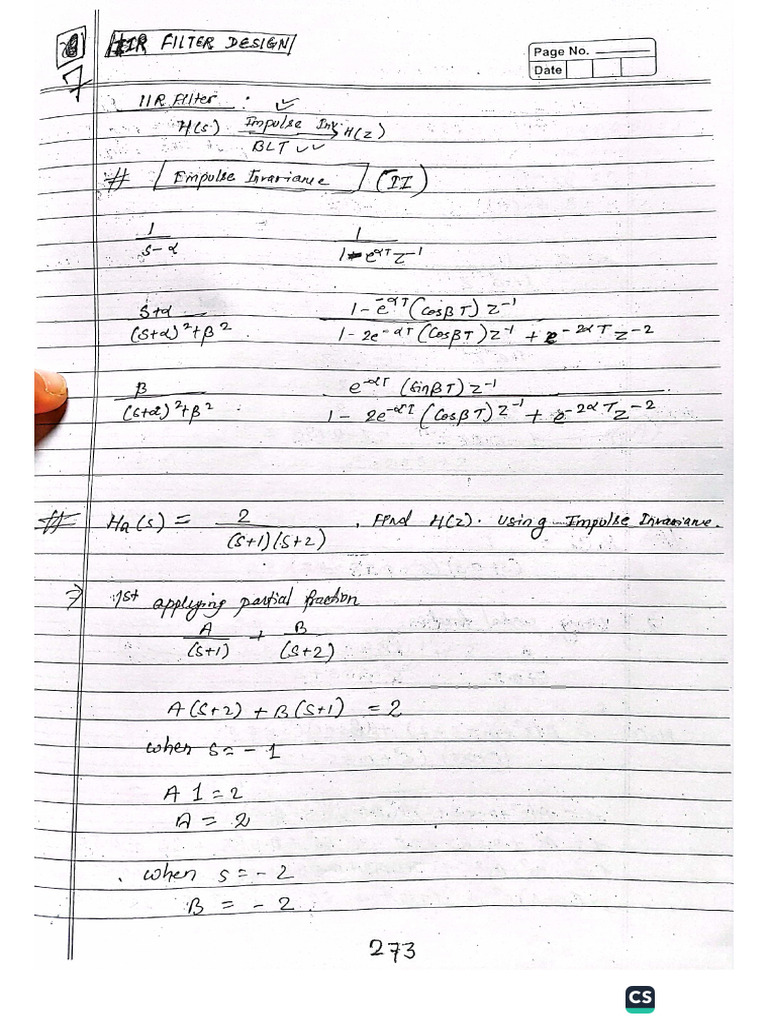 7 IIR FILTER DESIGN
Page No.
Date
IIR Filter : ✓
H(s) Impulse Inv. H(z)
BLT ✓✓
# Impulse Invariance (II)
1 1
s-α 1-e^αT z^-1
s+α 1-e^-αT (cosβT) z^-1
(s+α)^2+β^2 1-2e^-αT (cosβT) z^-1 + e^-2αT z^-2
β e^-αT (sinβT) z^-1
(s+α)^2+β^2 1-2e^-αT (cosβT) z^-1 + e^-2αT z^-2
# Ha(s) = 2 , Find H(z). Using Impulse Invariance.
(s+1)(s+2)
⇒ 1st applying partial fraction
A + B
(s+1) (s+2)
A(s+2) + B(s+1) = 2
when s = -1
A 1 = 2
A = 2
when s = -2
B = -2
273
CS